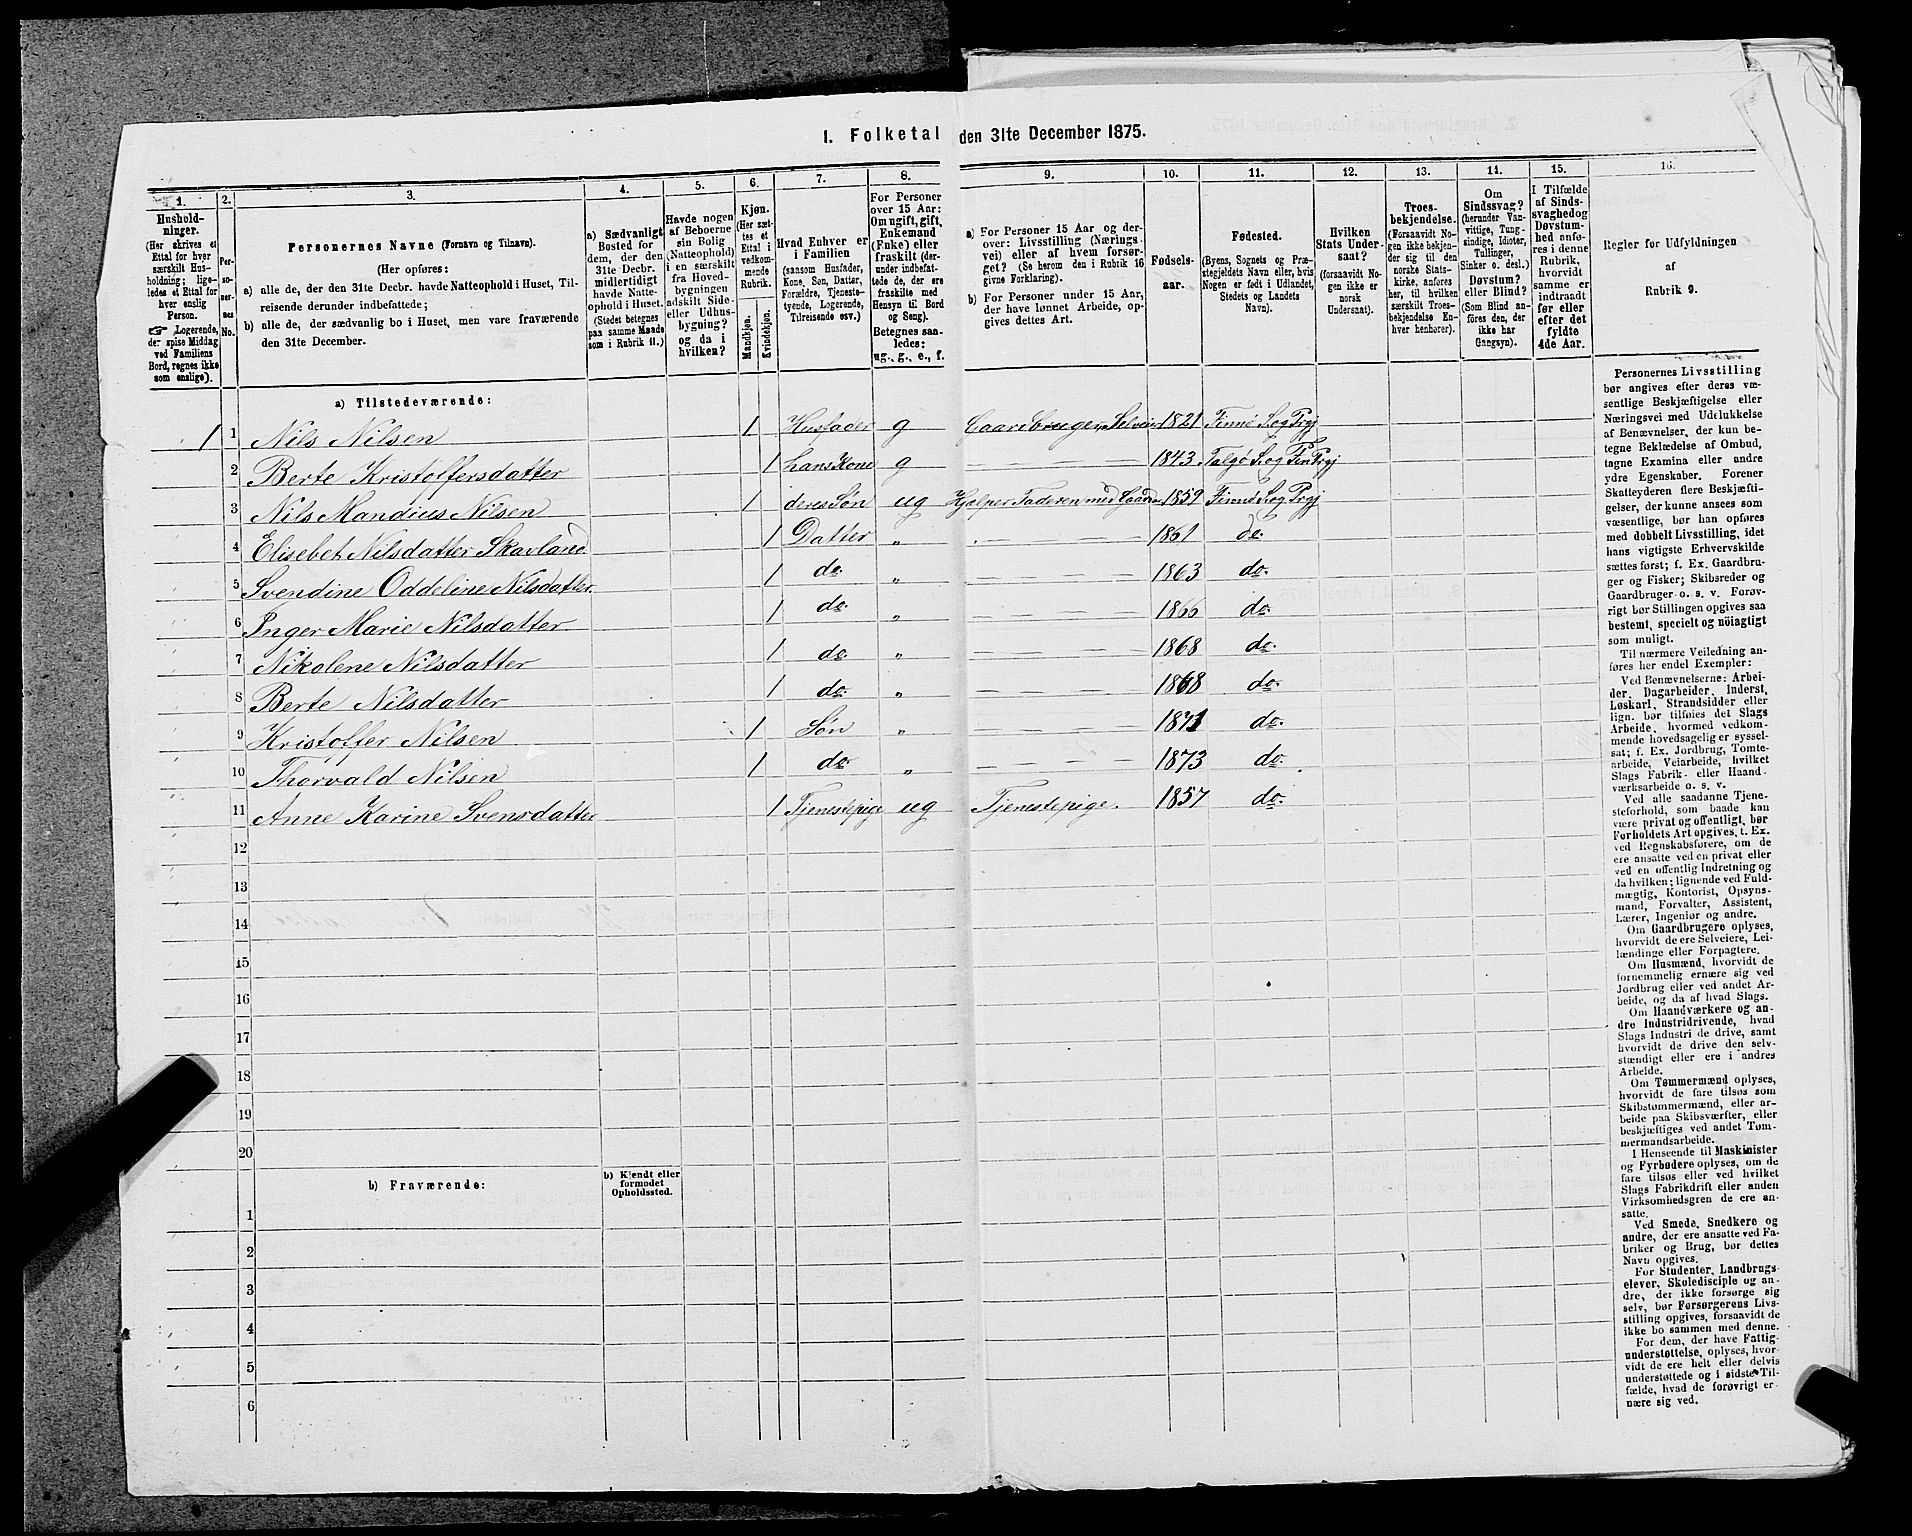 1. Folketal den 31te December 1875.
1.
2.
3.
4.
5.
6.
7.
8.
9.
10.
11.
12.
13.
14.
15.
16.
Hushold-
ninger.
(Her skrives et
Ettal for hver
særskilt Hus-
holdning; lige-
ledes et Ettal for
hver enslig
Person.
☞ Logerende,
der spise Middag
ved Familiens
Bord, regnes ikke
som enslige).
Per-
so-
ner-
nes
No.
Personernes Navne (Fornavn og Tilnavn).
(Her opføres:
a) alle de, der den 31te Decbr. havde Natteophold i Huset, Til-
reisende derunder indbefattede;
b) alle de, der sædvanlig bo i Huset, men vare fraværende
den 31te December.
a) Sædvanligt
Bosted for
dem, der den
31te Decbr.
midlertidigt
havde Natte-
ophold i Huset.
(Stedet betegnes
paa samme Maade
som i Rubrik 11.)
Havde nogen
af Beboerne
sin Bolig
(Natteophold)
i en særskilt
fra Hoved-
bygningen
adskilt Side-
eller Udhus-
bygning?
og da i
hvilken?
Kjøn.
(Her sæt-
tes et
Ettal i
vedkom-
mende
Rubrik.
Mandkjøn.
Kvindekjøn.
Hvad Enhver er
i Familien
(sansom Husfader,
Kone, Søn, Datter,
Forældre, Tjeneste-
tyende, Logerende,
Tilreisende osv.)
For Personer
over 15 Aar:
Om ugift, gift,
Enkemand
(Enke) eller
fraskilt (der-
under indbefat-
tede de, der ere
fraskilte med
Hensyn til Bord
og Seng).
Betegnes saa-
ledes:
ug., g., e., f.
a) For Personer 15 Aar og der-
over: Livsstilling (Nærings-
vei) eller af hvem forsør-
get? (Se herom den i Rubrik 16
givne Forklaring).
b) For Personer under 15 Aar,
der have lønnet Arbeide, op-
gives dettes Art.
Fødsels-
aar.
Fødested.
(Byens, Sognets og Præ-
stegjeldets Navn eller, hvis
Nogen er født i Udlandet,
Stedets og Landets
Navn).
Hvilken
Stats Under-
saat?
(forsaavidt No-
gen ikke er
norsk
Undersaat).
Troes-
bekjendelse.
(Forsaavidt No-
gen ikke bekjen-
der sig til den
norske Stats-
kirke, anføres
her, til hvilken
særskilt Troes-
bekjendelse En-
hver henhører).
Om
Sindssvag?
(herunder Van-
vittige, Tung-
sindige, Idioter,
Tullinger,
Sinker o. desl.)
Døvstum?
eller Blind?
(Som Blind an-
føres den, der
ikke har
Gangsyn).
I Tilfælde
af Sinds-
svaghed og
Døvstum-
hed anfø-
res i denne
Rubrik,
hvorvidt
samme er
indtraadt
før eller
efter det
fyldte
4de Aar.
Regler for Udfyldningen
af
Rubrik 9.
a) Tilstedeværende:
1 1 Nils Nilsen 1 Husfader g Gaardbruger, Selveier 1821 Finnø S. og Prgj
2 Berte Kristolfersdatter 1 hans Kone g 1843 Talgø S. og Fin Prgj
3 Nils Mandius Nilsen 1 deres Søn ug Hjælper Faderen med Gaarden 1859 Finnø S. og Prgj
4 Elisebet Nilsdatter Skavland 1 Datter " 1861 do.
5 Svendine Oddeline Nilsdatter 1 do. " 1863 do.
6 Inger Marie Nilsdatter 1 do. " 1866 do.
7 Nikolene Nilsdatter 1 do. " 1868 do.
8 Berte Nilsdatter 1 do. " 1868 do.
9 Kristoffer Nilsen 1 Søn " 1871 do.
10 Thorvald Nilsen 1 do " 1873 do.
11 Anne Karine Svensdatter 1 Tjenestepige ug Tjenestepige. 1857 do.
12
13
14
15
16
17
18
19
20
b) Fraværende:
b) Kjendt eller
formodet
Opholdssted.
1
2
3
4
5
6
Personernes Livsstilling
bør angives efter deres væ-
sentlige Beskjæftigelse eller
Næringsvei med Udelukkelse
af Benævnelser, der kun be-
tegne Beklædelse af Ombud,
tagne Examina eller andre
ydre Egenskaber. Forener
Skatteyderen flere Beskjæfti-
gelser, der kunne ansees som
væsentlige, bør han opføres
med dobbelt Livsstilling, idet
hans vigtigste Erhvervskilde
sættes først; f. Ex. Gaardbru-
ger og Fisker; Skibsreder og
Gaardbruger o. s. v. Forøv-
rigt bør Stillingen opgives saa
bestemt, specielt og nöiagtigt
som muligt.
Til nærmere Veiledning an-
føres her endel Exempler:
Ved Benævnelserne: Arbei-
der, Dagarbeider, Inderst,
Løskarl, Strandsidder eller
lign. bør tilføies det Slags
Arbeide, hvormed vedkom-
mende hovedsagelig er syssel-
sat; f. Ex. Jordbrug, Tomte-
arbeide, Veiarbeide, hvilket
Slags Fabrik- eller Haand-
værksarbeide o. s. v.
Ved alle saadanne Tjene-
steforhold, som baade kan
være privat og offentligt, bør
Forholdets Art opgives, t. Ex.
ved Regnskabsførere, om de
ere ansatte ved en privat eller
ved en offentlig Indretning og
da hvilken; lignende ved Fuld-
mægtig, Kontorist, Opsyns-
mand, Forvalter, Assistent,
Lærer, Ingeniør og andre.
Om Gaardbrugere oplyses,
hvorvidt de ere Selveiere, Lei-
lændinge eller Forpagtere.
Om Husmænd, hvorvidt de
fornemmelig ernære sig ved
Jordbrug eller ved andet Ar-
beide, og da af hvad Slags.
Om Haandværkere og an-
dre Industridrivende, hvad
Slags Industri de drive, samt
hvorvidt de drive den selv-
stændigt eller ere i andres
Arbeide.
Om Tømmermænd oplyses,
hvorvidt de fare tilsøs som
Skibstømmermænd, eller ar-
beide paa Skibsværfter, eller
beskjæftiges ved andet Tøm-
mermandsarbeide.
I Henseende til Maskinister
og Fyrbødere oplyses, om de
fare tilsøs eller ved hvilket
Slags Fabrikdrift eller anden
Virksomhedsgren de ere an-
satte.
Ved Smede, Snedkere og
andre, der ere ansatte ved Fa-
briker og Brug, bør dettes
Navn opgives.
For Studenter, Landbrugs-
elever, Skoledisciple og an-
dre, der ikke forsørge sig
selv, bør Forsørgerens Livs-
stilling opgives, forsaavidt de
ikke bo sammen med denne.
For dem, der have Fattig-
understøttelse, oplyses, hvor-
vidt de ere helt eller delvis
understøttede og i sidste Til-
fælde, hvad de forøvrigt er-
nære sig ved.